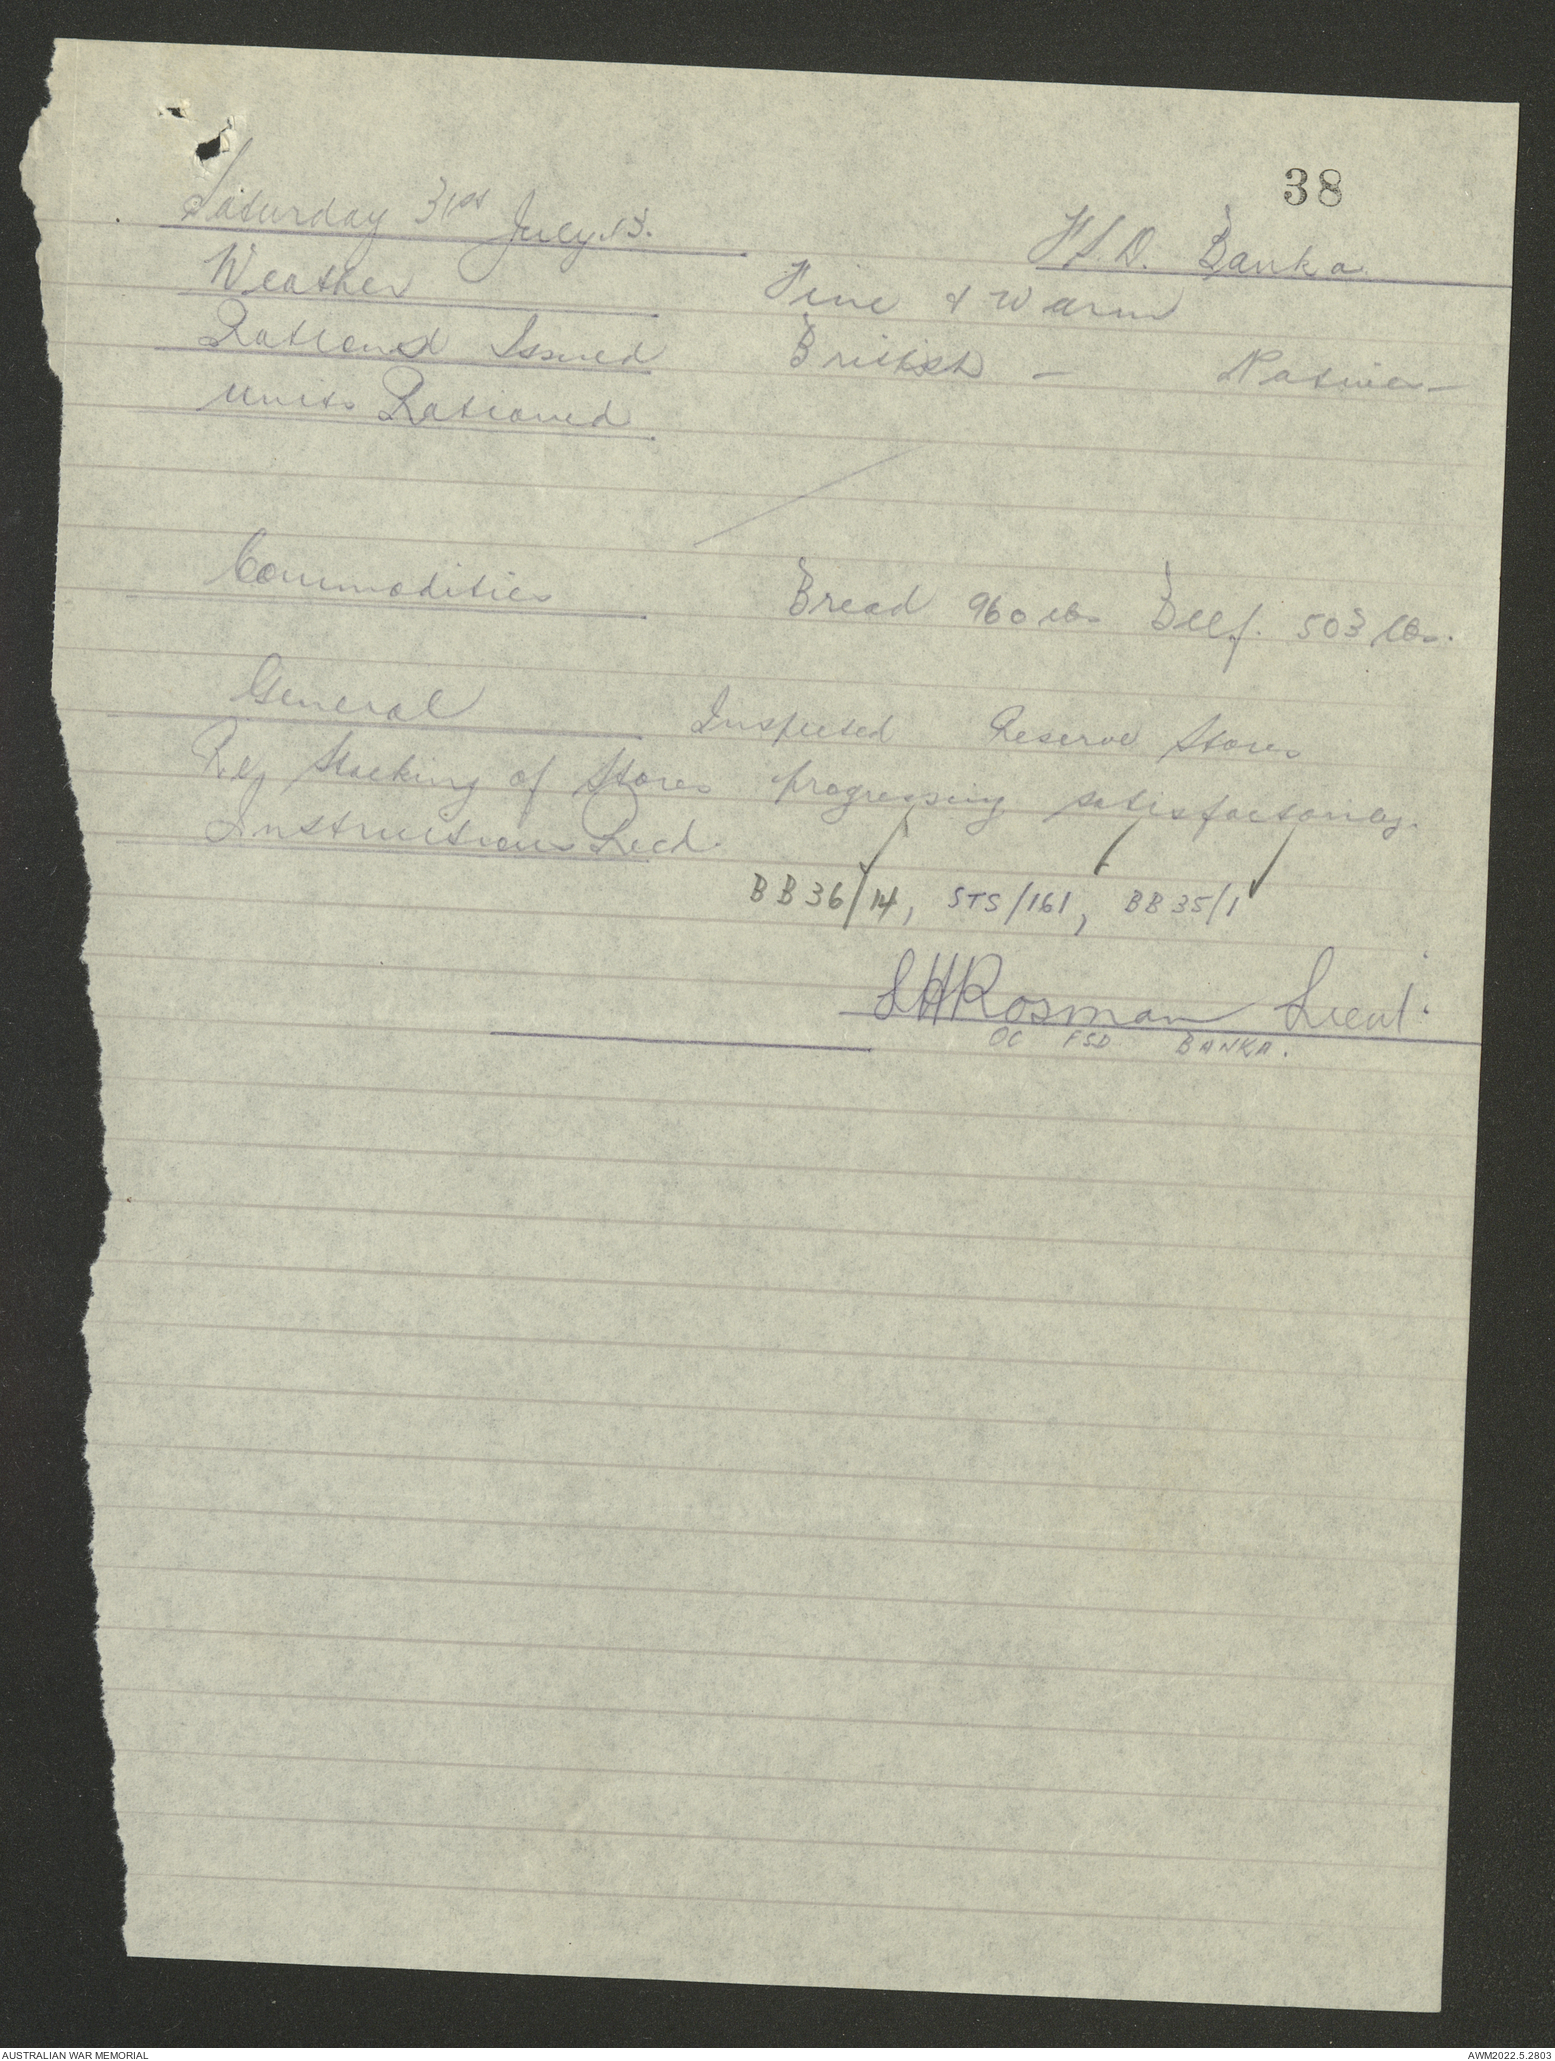 38
Saturday 31st July 43. F.S.D. Banka.
Weather Fine & Warm
Rations Issued British — Natives —
Units Rationed
Commodities Bread 960 lbs Beef. 503 lbs.
General Inspected Reserve Stores
Re Stacking of Stores progressing satisfactorily.
Instructions Recd.
BB36/14, STS/161, BB35/1
Rosman Lieut.
OC FSD BANKA.
AUSTRALIAN WAR MEMORIAL AWM2022.5.2803